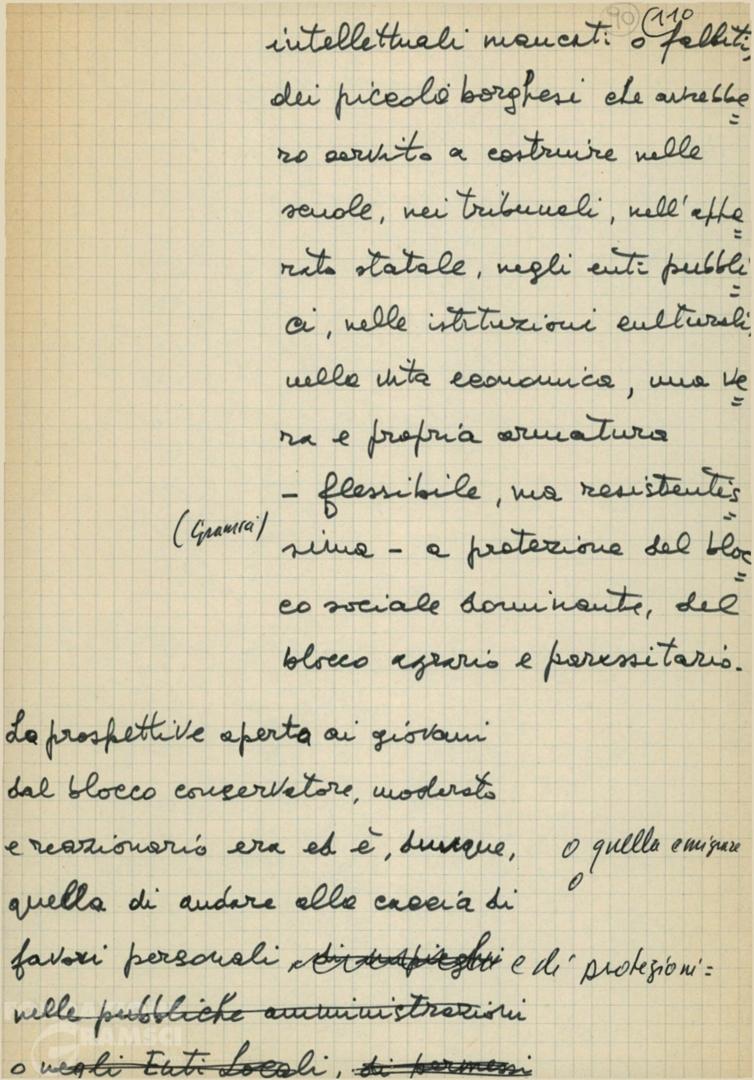 90 (110
intellettuali mancati o falliti,
dei piccolo borghesi che avrebbe
ro servito a costruire nelle
scuole, nei tribunali, nell'appa
rato statale, negli enti pubbli
ci, nelle istituzioni culturali,
nella vita economica, una ve
ra e propria armatura
- flessibile, ma resistentis
(Gramsci) sima - a protezione del bloc
co sociale dominante, del
blocco agrario e parassitario.
La prospettiva aperta ai giovani
dal blocco conservatore, moderato
e reazionario era ed è, dunque, o quella emigrare
quella di andare alla caccia di o
favori personali, e di protezioni =
nelle pubbliche amministrazioni
o negli Enti Locali, di permessi
GRAMSCI